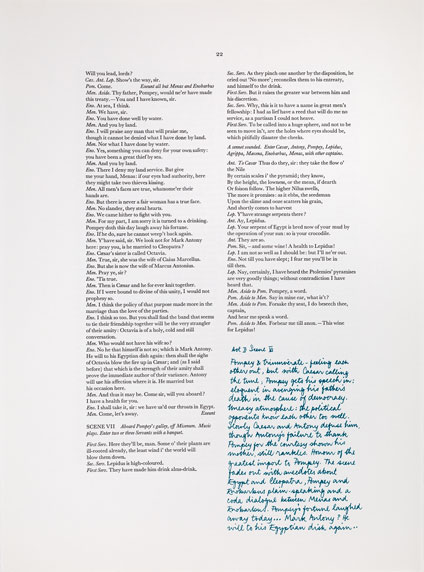 22
Will you lead, lords?
Cæs. Ant. Lep. Show's the way, sir.
Pom. Come. Exeunt all but Menas and Enobarbus
Men. Aside. Thy father, Pompey, would ne'er have made
this treaty. —You and I have known, sir.
Eno. At sea, I think.
Men. We have, sir.
Eno. You have done well by water.
Men. And you by land.
Eno. I will praise any man that will praise me,
though it cannot be denied what I have done by land.
Men. Nor what I have done by water.
Eno. Yes, something you can deny for your own safety:
you have been a great thief by sea.
Men. And you by land.
Eno. There I deny my land service. But give
me your hand, Menas: if our eyes had authority, here
they might take two thieves kissing.
Men. All men's faces are true, whatsome'er their
hands are.
Eno. But there is never a fair woman has a true face.
Men. No slander, they steal hearts.
Eno. We came hither to fight with you.
Men. For my part, I am sorry it is turned to a drinking.
Pompey doth this day laugh away his fortune.
Eno. If he do, sure he cannot weep't back again.
Men. Y'have said, sir. We look not for Mark Antony
here: pray you, is he married to Cleopatra?
Eno. Cæsar's sister is called Octavia.
Men. True, sir, she was the wife of Caius Marcellus.
Eno. But she is now the wife of Marcus Antonius.
Men. Pray ye, sir?
Eno. 'Tis true.
Men. Then is Cæsar and he for ever knit together.
Eno. If I were bound to divine of this unity, I would not
prophesy so.
Men. I think the policy of that purpose made more in the
marriage than the love of the parties.
Eno. I think so too. But you shall find the band that seems
to tie their friendship together will be the very strangler
of their amity: Octavia is of a holy, cold and still
conversation.
Men. Who would not have his wife so?
Eno. Not he that himself is not so; which is Mark Antony.
He will to his Egyptian dish again: then shall the sighs
of Octavia blow the fire up in Cæsar; and (as I said
before) that which is the strength of their amity shall
prove the immediate author of their variance. Antony
will use his affection where it is. He married but
his occasion here.
Men. And thus it may be. Come, sir, will you aboard?
I have a health for you.
Eno. I shall take it, sir: we have us'd our throats in Egypt.
Men. Come, let's away. Exeunt
SCENE VII Aboard Pompey's galley, off Misenum. Music
plays. Enter two or three Servants with a banquet.
First Serv. Here they'll be, man. Some o' their plants are
ill-rooted already, the least wind i' the world will
blow them down.
Sec. Serv. Lepidus is high-coloured.
First Serv. They have made him drink alms-drink.
Sec. Serv. As they pinch one another by the disposition, he
cries out 'No more'; reconciles them to his entreaty,
and himself to the drink.
First Serv. But it raises the greater war between him and
his discretion.
Sec. Serv. Why, this it is to have a name in great men's
fellowship: I had as lief have a reed that will do me no
service, as a partisan I could not heave.
First Serv. To be called into a huge sphere, and not to be
seen to move in't, are the holes where eyes should be,
which pitifully disaster the cheeks.
A sennet sounded. Enter Cæsar, Antony, Pompey, Lepidus,
Agrippa, Mæcenas, Enobarbus, Menas, with other captains.
Ant. To Cæsar Thus do they, sir: they take the flow o'
the Nile
By certain scales i' the pyramid; they know,
By the height, the lowness, or the mean, if dearth
Or foison follow. The higher Nilus swells,
The more it promises: as it ebbs, the seedsman
Upon the slime and ooze scatters his grain,
And shortly comes to harvest
Lep. Y'have strange serpents there?
Ant. Ay, Lepidus.
Lep. Your serpent of Egypt is bred now of your mud by
the operation of your sun: so is your crocodile.
Ant. They are so.
Pom. Sit, – and some wine! A health to Lepidus!
Lep. I am not so well as I should be: but I'll ne'er out.
Eno. Not till you have slept; I fear me you'll be in
till then.
Lep. Nay, certainly, I have heard the Ptolemies' pyramises
are very goodly things; without contradiction I have
heard that.
Men. Aside to Pom. Pompey, a word.
Pom. Aside to Men. Say in mine ear, what is't?
Men. Aside to Pom. Forsake thy seat, I do beseech thee,
captain,
And hear me speak a word.
Pom. Aside to Men. Forbear me till anon. —This wine
for Lepidus!
Act II Scene VI
Pompey & triumvirate - feeling each
other out, but with Caesar calling
the tune; Pompey gets his speech in;
eloquent in avenging his fathers
death in the cause of democracy.
Uneasy atmosphere: the political
opponents know each other too well.
Slowly Caesar and Antony defuse him,
though Antony's failure to thank
Pompey for the courtesy shown his
mother, still rankles. Honour of the
greatest import to Pompey. The scene
fades out with anecdotes about
Egypt and Cleopatra, Pompey and
Enobarbus plain-speaking and a
coda dialogue between Menas and
Enobarbus. Pompey's fortune laughed
away today... Mark Antony? He
will to his Egyptian dish again..